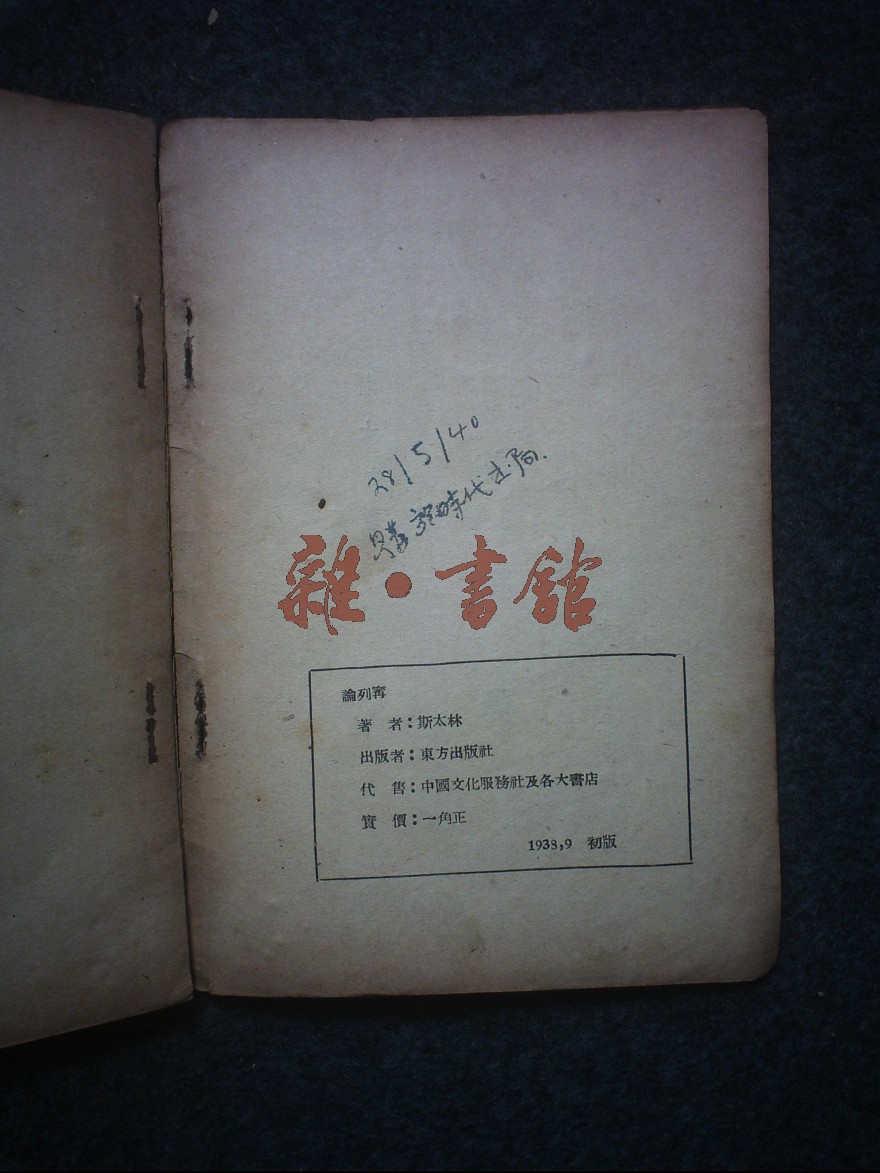 28/5/40
購於時代書局.
雜·書館
論列寗
著 者：斯太林
出版者：東方出版社
代 售：中國文化服務社及各大書店
實 價：一角正
1938,9 初版